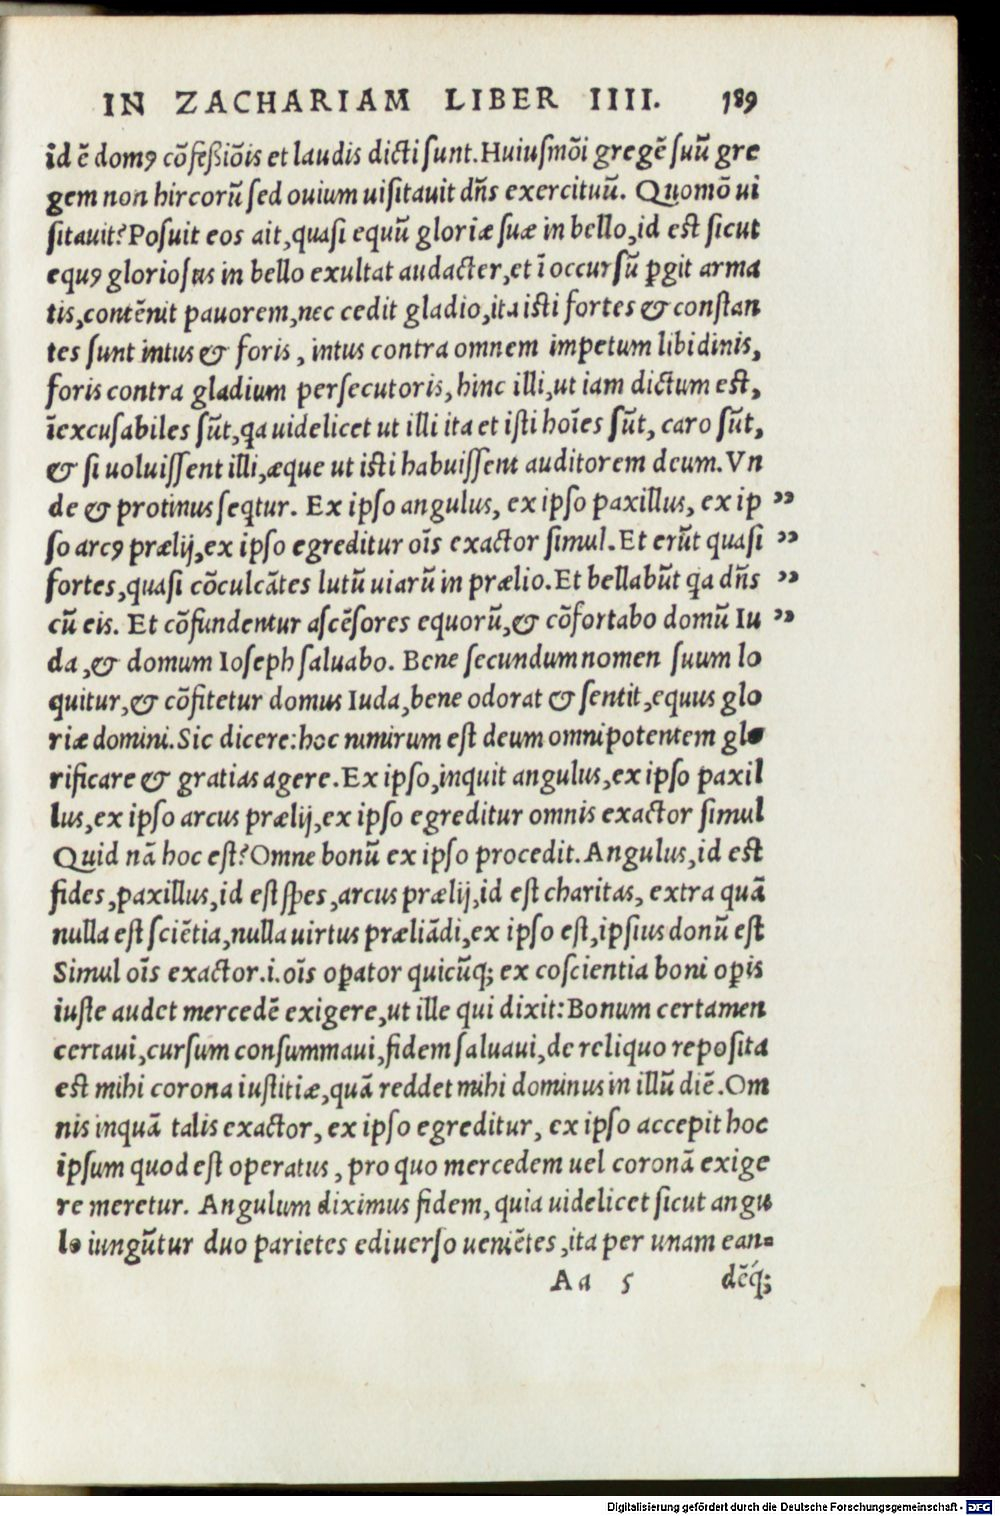 IN ZACHARIAM LIBER IIII. 189
id ē domꝰ cōfeßiōis et laudis dicti sunt. Huiusmōi gregē suū gre
gem non hircorū sed ouium uisitauit dn̄s exercituū. Quomō ui
sitauit? Posuit eos ait, quasi equū gloriæ suæ in bello, id est sicut
equꝰ gloriosus in bello exultat audacter, et ī occursū ꝑgit arma
tis, contēnit pauorem, nec cedit gladio, ita isti fortes & constan
tes sunt intus & foris, intus contra omnem impetum libidinis,
foris contra gladium persecutoris, hinc illi, ut iam dictum est,
īexcusabiles sūt, qa uidelicet ut illi ita et isti hoīes sūt, caro sūt,
& si uoluissent illi, æque ut isti habuissent auditorem deum. Vn
de & protinus seqtur. Ex ipso angulus, ex ipso paxillus, ex ip ”
so arcꝰ prælij, ex ipso egreditur oīs exactor simul. Et erūt quasi ”
fortes, quasi cōculcātes lutū uiarū in prælio. Et bellabūt qa dn̄s ”
cū eis. Et cōfundentur ascēsores equorū, & cōfortabo domū Iu ”
da, & domum Ioseph saluabo. Bene secundum nomen suum lo
quitur, & cōfitetur domus Iuda, bene odorat & sentit, equus glo
riæ domini. Sic dicere: hoc nimirum est deum omnipotentem glo
rificare & gratias agere. Ex ipso, inquit angulus, ex ipso paxil
lus, ex ipso arcus prælij, ex ipso egreditur omnis exactor simul
Quid nā hoc est? Omne bonū ex ipso procedit. Angulus, id est
fides, paxillus, id est spes, arcus prælij, id est charitas, extra quā
nulla est sciētia, nulla uirtus præliādi, ex ipso est, ipsius donū est
Simul oīs exactor .i. oīs oꝑator quicūq; ex coscientia boni oꝑis
iuste audet mercedē exigere, ut ille qui dixit: Bonum certamen
certaui, cursum consummaui, fidem saluaui, de reliquo reposita
est mihi corona iustitiæ, quā reddet mihi dominus in illū diē. Om
nis inquā talis exactor, ex ipso egreditur, ex ipso accepit hoc
ipsum quod est operatus, pro quo mercedem uel coronā exige
re meretur. Angulum diximus fidem, quia uidelicet sicut angu
lo iungūtur duo parietes ediuerso ueniētes, ita per unam ean-
Aa 5 dēq́;
Digitalisierung gefördert durch die Deutsche Forschungsgemeinschaft - DFG